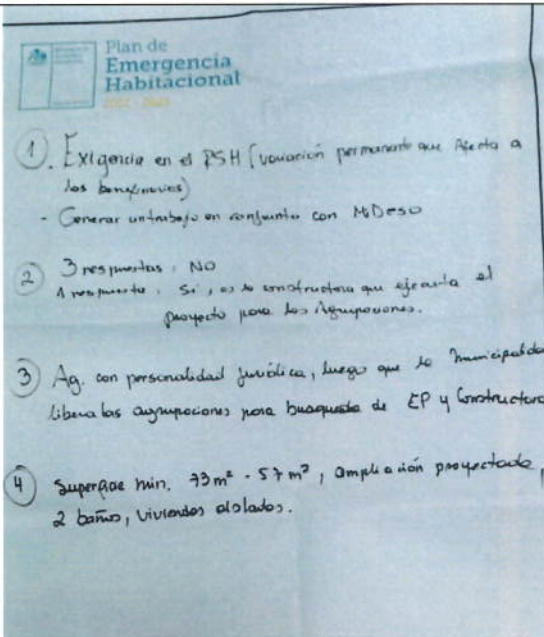 Plan de
Emergencia
Habitacional
①. Exigencia en el RSH (variación permanente que Afecta a
los beneficiarios)
- Generar un trabajo en conjunto con MDeso
② 3 respuestas, NO
1 respuesta. Si, es la constructora que ejecuta el
proyecto para las Agrupaciones.
③ Ag. con personalidad jurídica, luego que la municipalidad
libera las agrupaciones para busqueda de EP y Constructora
④ Superficie min. 73 m² - 57 m², ampliación proyectada,
2 baños, viviendas aisladas.